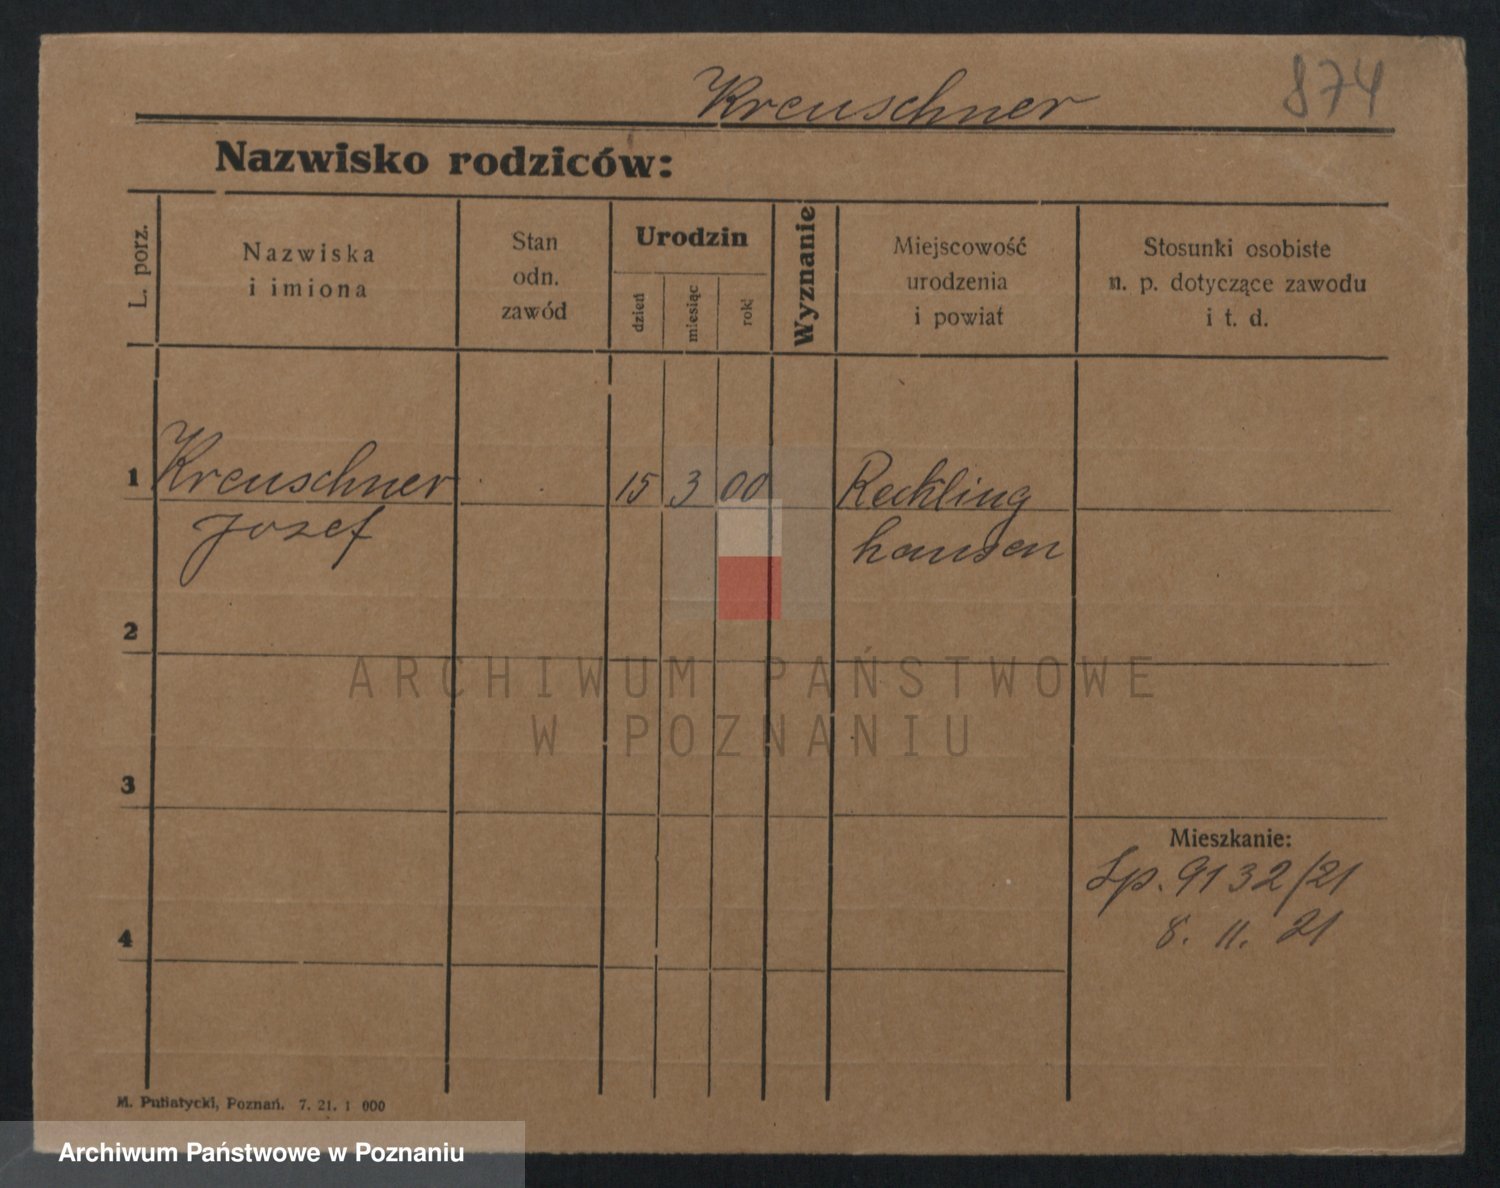 Kreuschner
874
Nazwisko rodziców:
L. porz.
Nazwiska
i imiona
Stan
odn.
zawód
Urodzin
dzień
miesiąc
rok
Wyznanie
Miejscowość
urodzenia
i powiat
Stosunki osobiste
n. p. dotyczące zawodu
i t. d.
1 Kreuschner 15 3 00 Reckling
Jozef hausen
2
3
4
Mieszkanie:
Lp. 9132/21
8. 11. 21
ARCHIWUM PAŃSTWOWE
W POZNANIU
M. Putiatycki, Poznań. 7. 21. 1 000
Archiwum Państwowe w Poznaniu